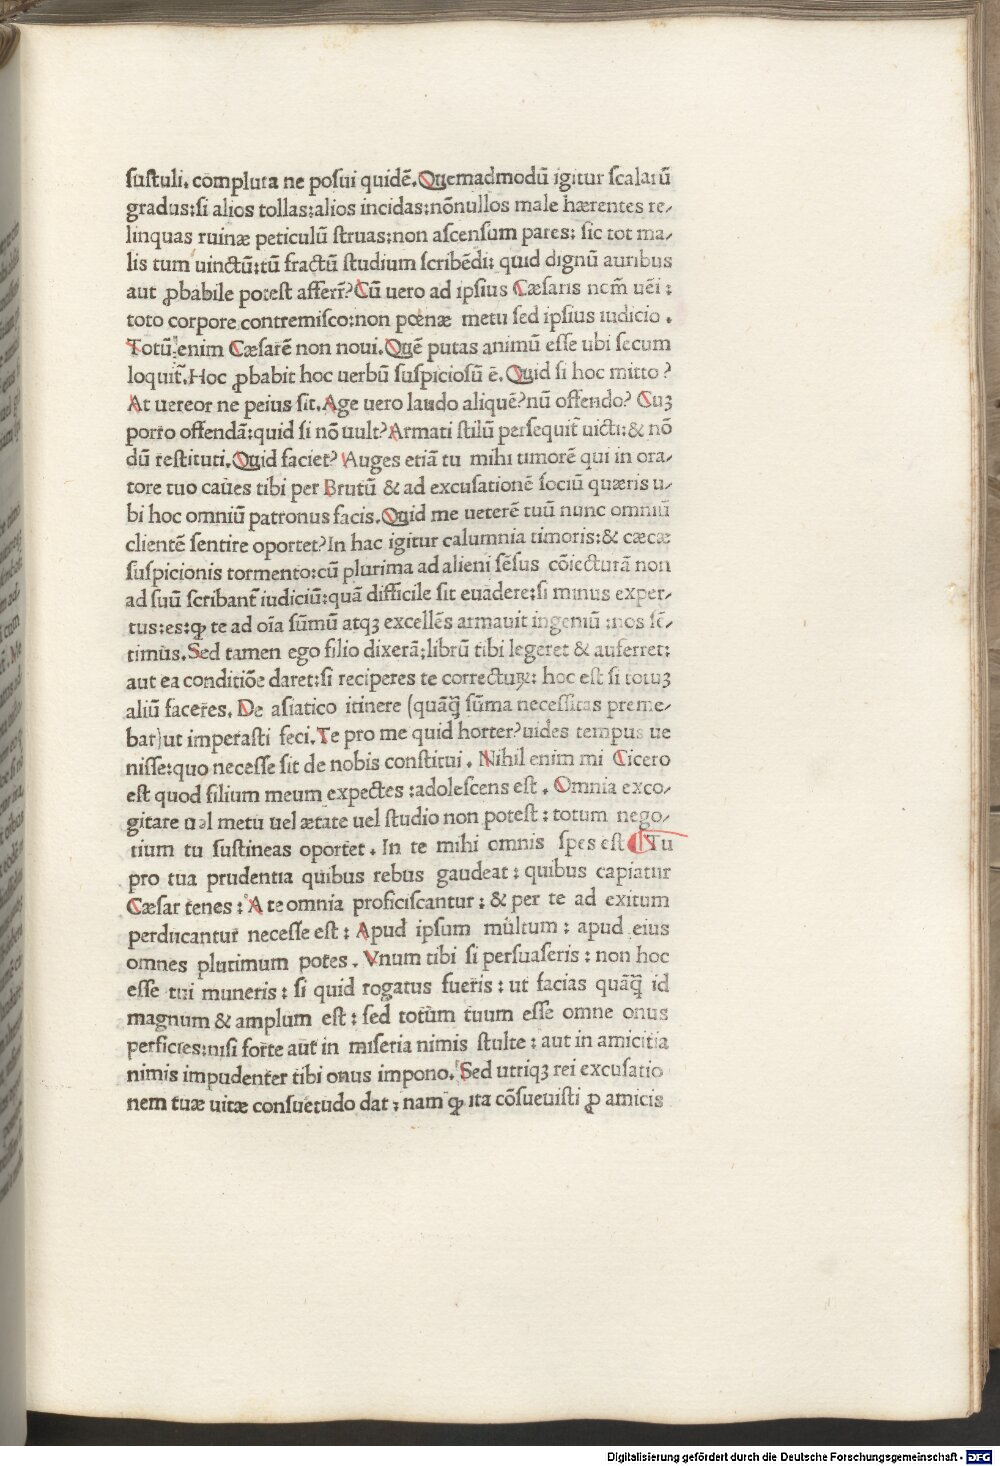 sustuli. compluta ne posui quidē. Quemadmodū igitur scalarū
gradus: si alios tollas: alios incidas: nōnullos male hærentes re-
linquas ruinæ periculū struas: non ascensum pares: sic tot ma-
lis tum uinctū: tū fractū studium scribēdi: quid dignū auribus
aut ꝓbabile potest afferr̄? Cū uero ad ipsius Cæsaris nom̄ uēi:
toto corpore contremisco: non pœnæ metu sed ipsius iudicio.
Totū enim Cæsarē non noui. Quē putas animū esse ubi secum
loquit̄. Hoc ꝓbabit hoc uerbū suspiciosū ē. Quid si hoc mitto?
At uereor ne peius sit. Age uero laudo aliquē? nū offendo? Cuꝫ
porro offendā: quid si nō uult? Armati stilū persequit̄ uicti: & nō
dū restituti. Quid faciet? Auges etiā tu mihi timorē qui in ora-
tore tuo caues tibi per Brutū & ad excusationē sociū quæris u-
bi hoc omniū patronus facis. Quid me ueterē tuū nunc omniū
clientē sentire oportet? In hac igitur calumnia timoris: & cæcæ
suspicionis tormento: cū plurima ad alieni sēsus cōiecturā non
ad suū scribant̄ iudiciū: quā difficile sit euadere: si minus exper-
tus: es: ꝙ te ad oīa sūmū atqꝫ excellēs armauit ingeniū: nos sē-
timus. Sed tamen ego filio dixerā: librū tibi legeret & auferret:
aut ea conditiōe daret: si reciperes te correcturꝝ: hoc est si totuꝫ
aliū faceres. De asiatico itinere (quāq̄ sūma necessitas preme-
bat) ut imperasti feci. Te pro me quid horter? uides tempus ue
nisse: quo necesse sit de nobis constitui. Nihil enim mi Cicero
est quod filium meum expectes: adolescens est. Omnia exco-
gitare uel metu uel ætate uel studio non potest: totum nego-
tium tu sustineas oportet. In te mihi omnis spes est Tu
pro tua prudentia quibus rebus gaudeat: quibus capiatur
Cæsar tenes: A te omnia proficiscantur: & per te ad exitum
perducantur necesse est: Apud ipsum multum: apud eius
omnes plurimum potes. Vnum tibi si persuaseris: non hoc
esse tui muneris: si quid rogatus fueris: ut facias quāq̄ id
magnum & amplum est: sed totum tuum esse omne onus
perficies: nisi forte aut in miseria nimis stulte: aut in amicitia
nimis impudenter tibi onus impono. Sed utriqꝫ rei excusatio
nem tuæ uitæ consuetudo dat: nam ꝙ ita cōsueuisti ꝓ amicis
Digitalisierung gefördert durch die Deutsche Forschungsgemeinschaft - DFG